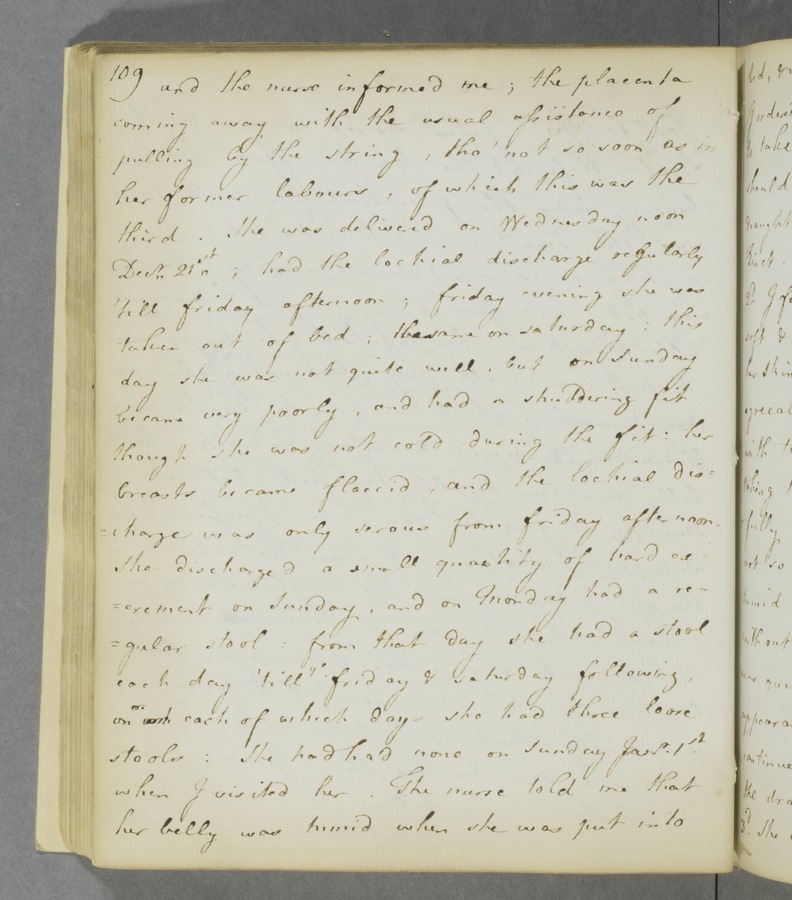 109 and the nurse informed me ; the placenta
coming away with the usual assistance of
pulling by the string , tho' not so soon as in
her former labours , of which this was the
third . She was delivered on Wednesday noon
Decr. 21st ; had the lochial discharge regularly
'till friday afternoon ; friday evening she was
taken out of bed ; the same on saturday : this
day she was not quite well , but on sunday
became very poorly , and had a shuddering fit
though she was not cold during the fit : her
breasts became flaccid , and the lochial dis=
=charge was only serous from friday afternoon .
She discharged a small quantity of hard ex-
=crement on Sunday , and on Monday had a re-
=gular stool : from that day she had a stool
each day 'till ye. friday & saturday following ,
on each of which days she had three loose
stools : She had had none on Sunday Jany. 1st.
when I visited her . The nurse told me that
her belly was tumid when she was put into